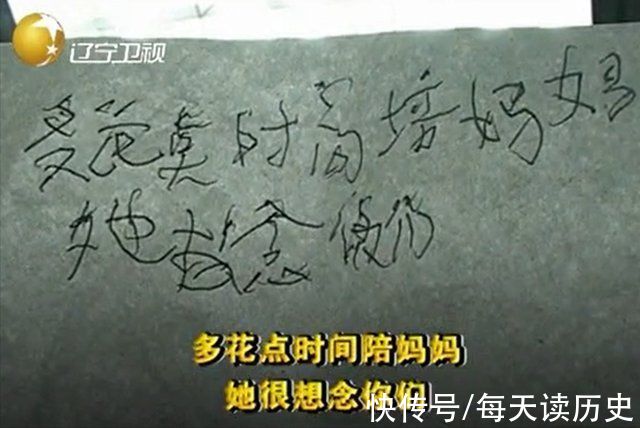 辽宁卫视
多花点时间培妈妈
她很想念你们
多花点时间陪妈妈
她很想念你们
快传号/每天读历史